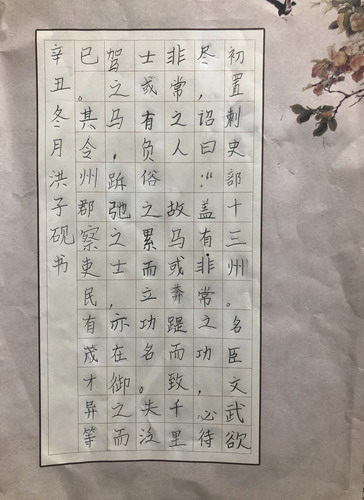 初置刺史部十三州。名臣文武欲
尽，诏曰：“盖有非常之功，必待
非常之人，故马或奔踶而致千里
士或有负俗之累而立功名。失泛
驾之马，跅弛之士，亦在御之而
已。其令州郡察吏民有茂才异等
辛丑冬月洪子砚书